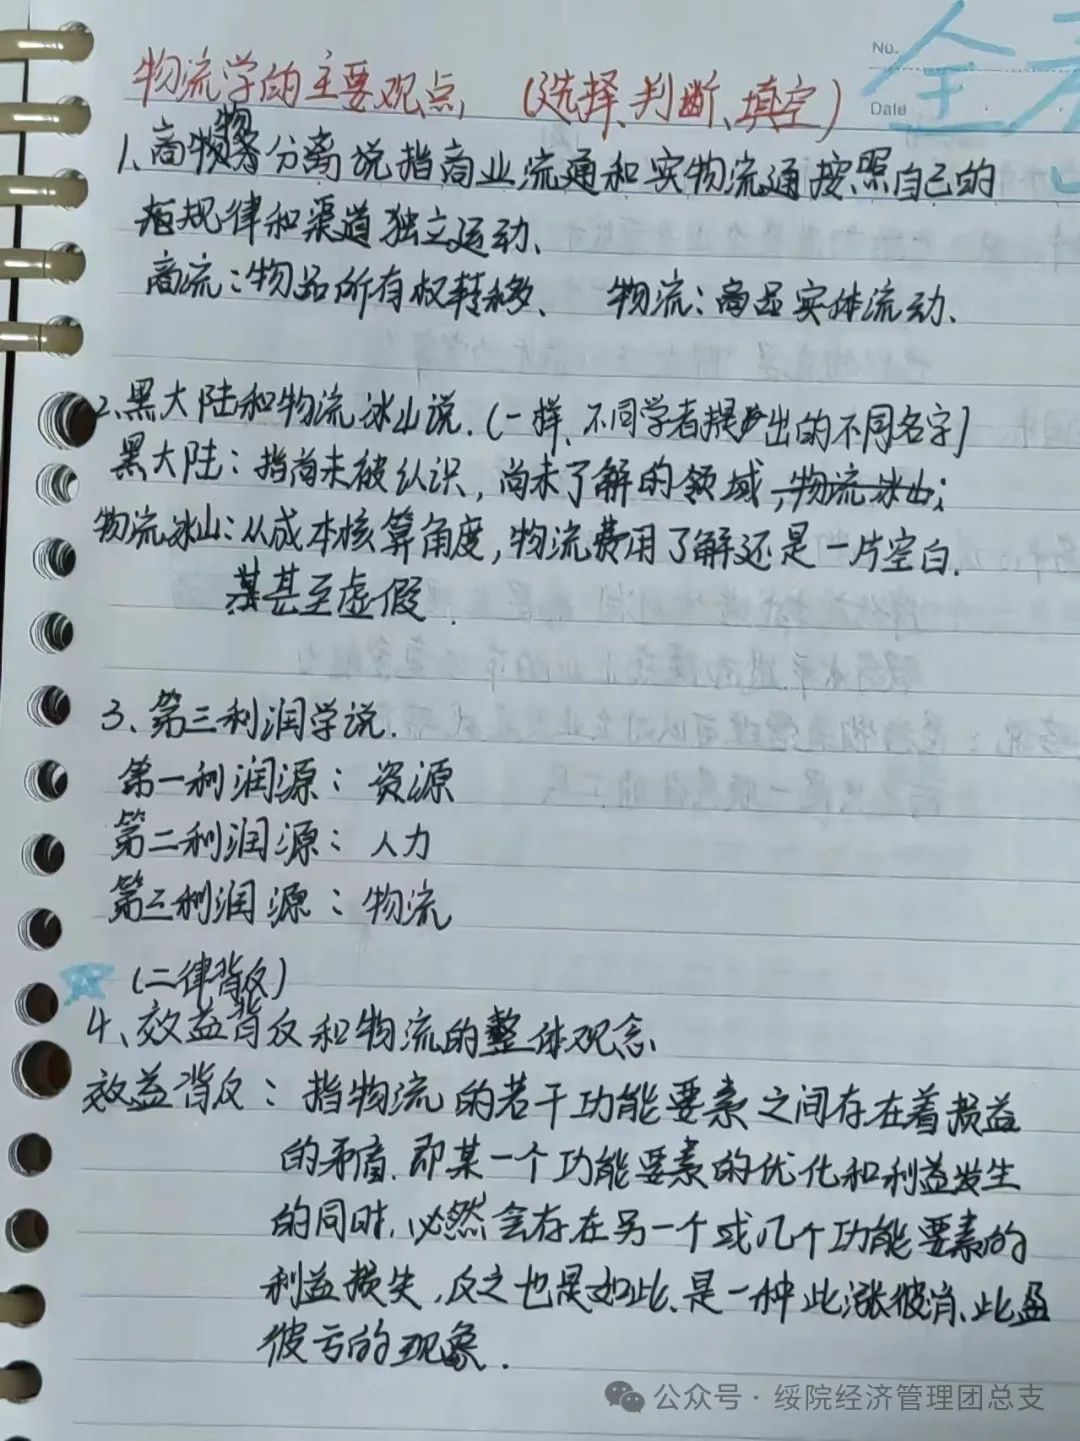 No.
Date
全
物流学的主要观点 (选择、判断、填空)
1、商物分离说指商业流通和实物流通按照自己的
规律和渠道独立运动、
商流：物品所有权转移、 物流：商品实体流动、
2、黑大陆和物流冰山说.(一样、不同学者提出的不同名字)
黑大陆：指尚未被认识，尚未了解的领域，物流冰山；
物流冰山：从成本核算角度，物流费用了解还是一片空白.
甚至虚假.
3、第三利润学说.
第一利润源：资源
第二利润源：人力
第三利润源：物流
(二律背反)
4、效益背反和物流的整体观念、
效益背反：指物流的若干功能要素之间存在着损益
的矛盾.即某一个功能要素的优化和利益发生
的同时，必然会存在另一个或几个功能要素的
利益损失，反之也是如此、是一种此涨彼消、此盈
彼亏的现象.
公众号·绥院经济管理团总支